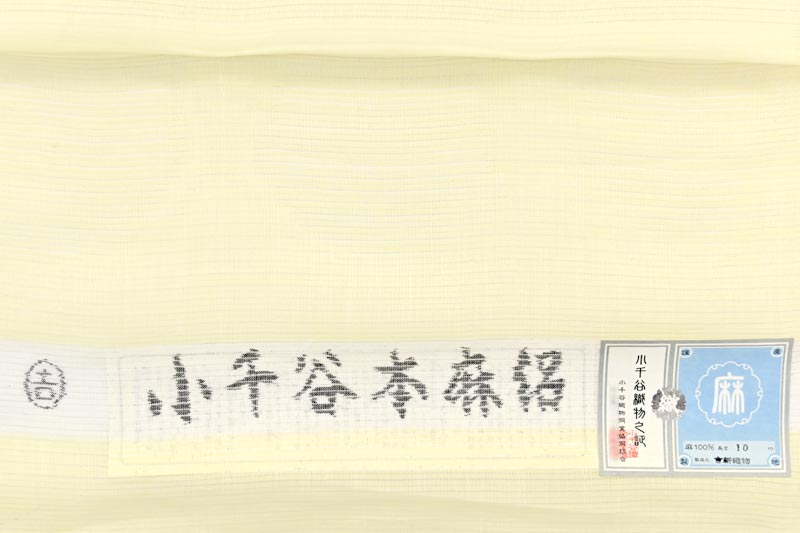 吉
小千谷本麻絽
小千谷織物之証
小千谷織物同業協同組合
麻
麻100% 長さ 10 m
製造元 吉新織物